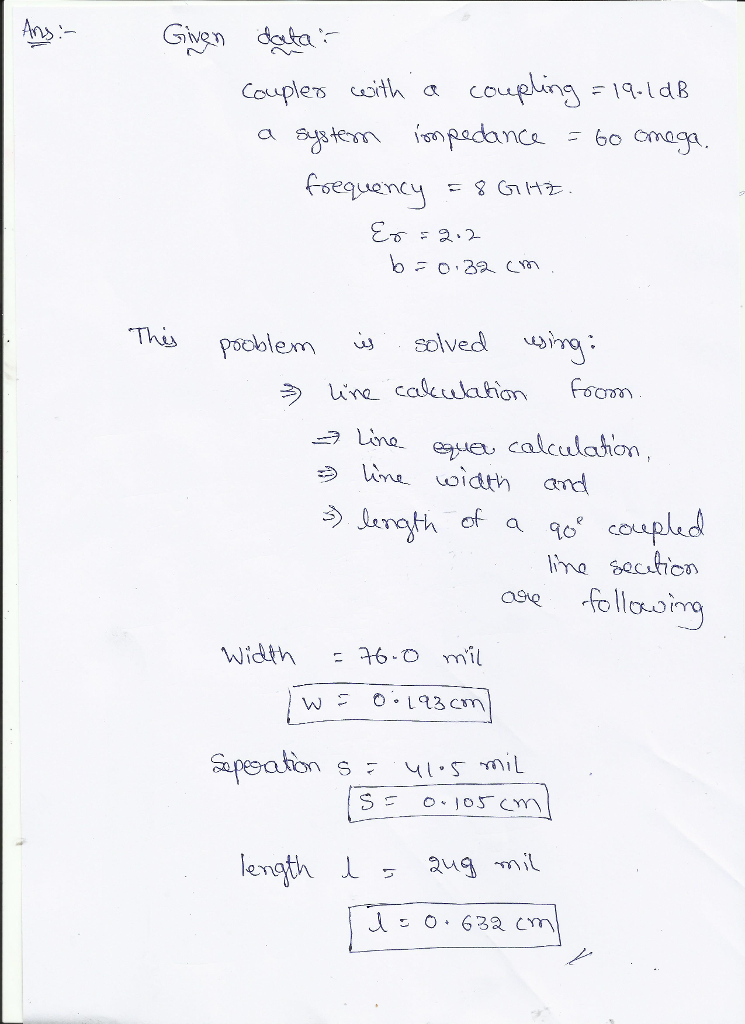 Ans:- Given data:-
Coupler with a coupling = 19.1dB
a system impedance = 60 omega.
frequency = 8 GHz.
Er = 2.2
b = 0.32 cm.
This problem is solved using:
⇒ line calculation from.
⇒ Line calculation,
⇒ line width and
⇒ length of a 90° coupled
line section
are following
Width = 76.0 mil
W = 0.193cm
Seperation s = 41.5 mil
S = 0.105 cm
length l = 249 mil
l = 0.632 cm